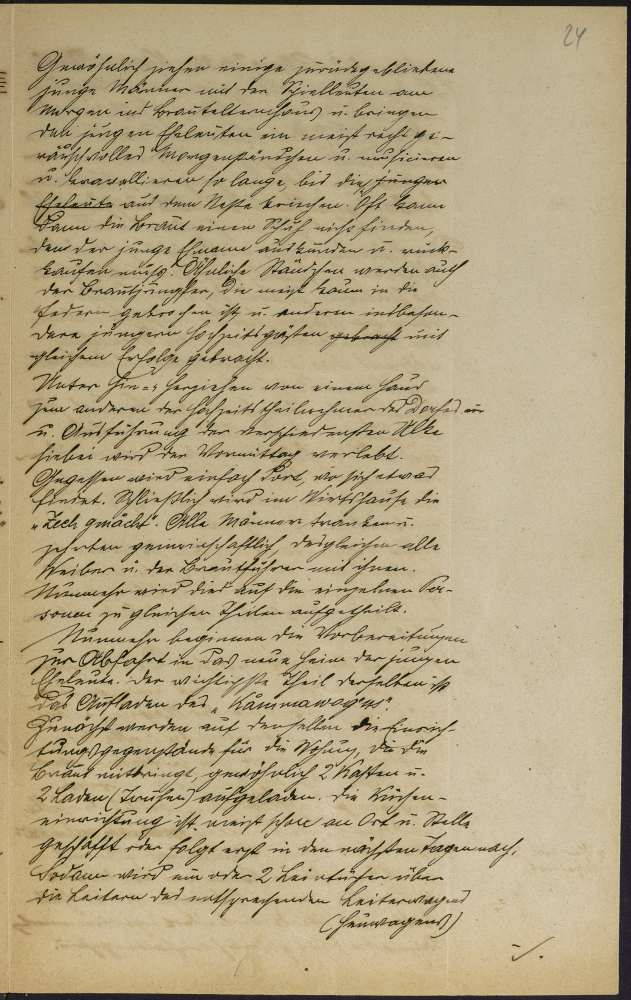 24
Gewöhnlich ziehen einige zurückgebliebene
junge Männer mit den Spielleuten am
Morgen ins Brautelternhaus u. bringen
den jungen Eheleuten ein meist recht ge-
räuschvolles Morgenständchen u. musicieren
u. krawallieren so lange, bis die jungen
Eheleute aus dem Neste kriechen. Oft kann
dann die Braut einen Schuh nicht finden,
den der junge Ehmann auskunden u. rück-
kaufen muß. Ähnliche Ständchen werden auch
der Brautjungfer, die meist kaum in die
Federn gekrochen ist, u. anderen insbeson-
dere jüngern Hochzeitsgästen gebracht mit
gleichem Erfolge gebracht.
Unter Hin- u. Herziehen von einem Haus
zum anderen der Hochzeitstheilnehmer des Dorfes
u. Ausführung der verschiedensten Ulke
hiebei wird der Vormittag verlebt.
Gegessen wird einfach dort, wo sich etwas
findet. Schließlich wird im Wirtshause die
„Zech gmacht". Alle Männer tranken u.
zehrten gemeinschaftlich, desgleichen alle
Weiber u. der Brautführer mit ihnen.
Nunmehr wird dies auf die einzelnen Per-
sonen zu gleichen Theilen aufgetheilt.
Nunmehr beginnen die Vorbereitungen
zur Abfahrt in das neue Heim der jungen
Eheleute. Der wichtigste Theil derselben ist
das Aufladen des „Kammawag'ns".
Zunächst werden auf denselben die Einrich-
tungsgegenstände für die Wohnung, die die
Braut mitbringt, gewöhnlich 2 Kasten u.
2 Laden (Truhen) aufgeladen. Die Küchen-
einrichtung ist meist schon an Ort u. Stelle
geschafft oder folgt erst in den nächsten Tagen nach.
Sodann wird ein oder 2 über
die Leitern des entsprechenden Leiterwagens
(Heuwagens)
./.